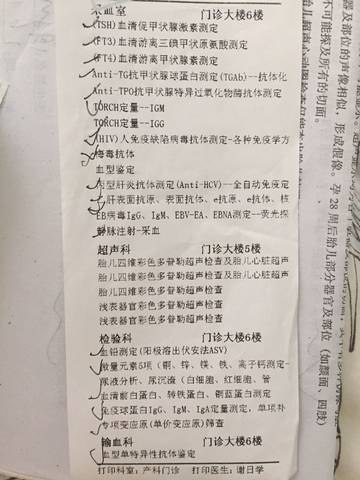 采血室 门诊大楼6楼
(TSH)血清促甲状腺激素测定
(FT3)血清游离三碘甲状原氨酸测定
(FT4)血清游离甲状腺素测定
Anti-TG抗甲状腺球蛋白测定(TGAb)--抗体化
Anti-TPO抗甲状腺特异过氧化物酶抗体测定
TORCH定量--IGM
TORCH定量--IGG
(HIV)人免疫缺陷病毒抗体测定-各种免疫学方
梅毒抗体
血型鉴定
丙型肝炎抗体测定(Anti-HCV)--全自动免疫定
肝表面抗原、表面抗体、e抗原、e抗体、核
EB病毒IgG、IgM、EBV-EA、EBNA测定--荧光探
静脉注射-采血
超声科 门诊大楼5楼
胎儿四维彩色多普勒超声检查及胎儿心脏超声
胎儿四维彩色多普勒超声检查及胎儿心脏超声
胎儿四维彩色多普勒超声检查
浅表器官彩色多普勒超声检查
浅表器官彩色多普勒超声检查
检验科 门诊大楼6楼
血铅测定(阳极溶出伏安法ASV)
微量元素5项(铜、锌、镁、铁、离子钙)测定-
尿液分析、尿沉渣(白细胞、红细胞、管
血清前白蛋白、转铁蛋白、铜蓝蛋白测定
免疫球蛋白IgG、IgM、IgA定量测定，单项补
专项变应原(单价变应原)筛查
输血科 门诊大楼6楼
血型单特异性抗体鉴定
打印科室：产科门诊 打印医生：谢日学
及部位的声像相似，形成假像。孕28周后胎儿部分器官及部位（如颜面、四肢）
不可能探及所有的切面。